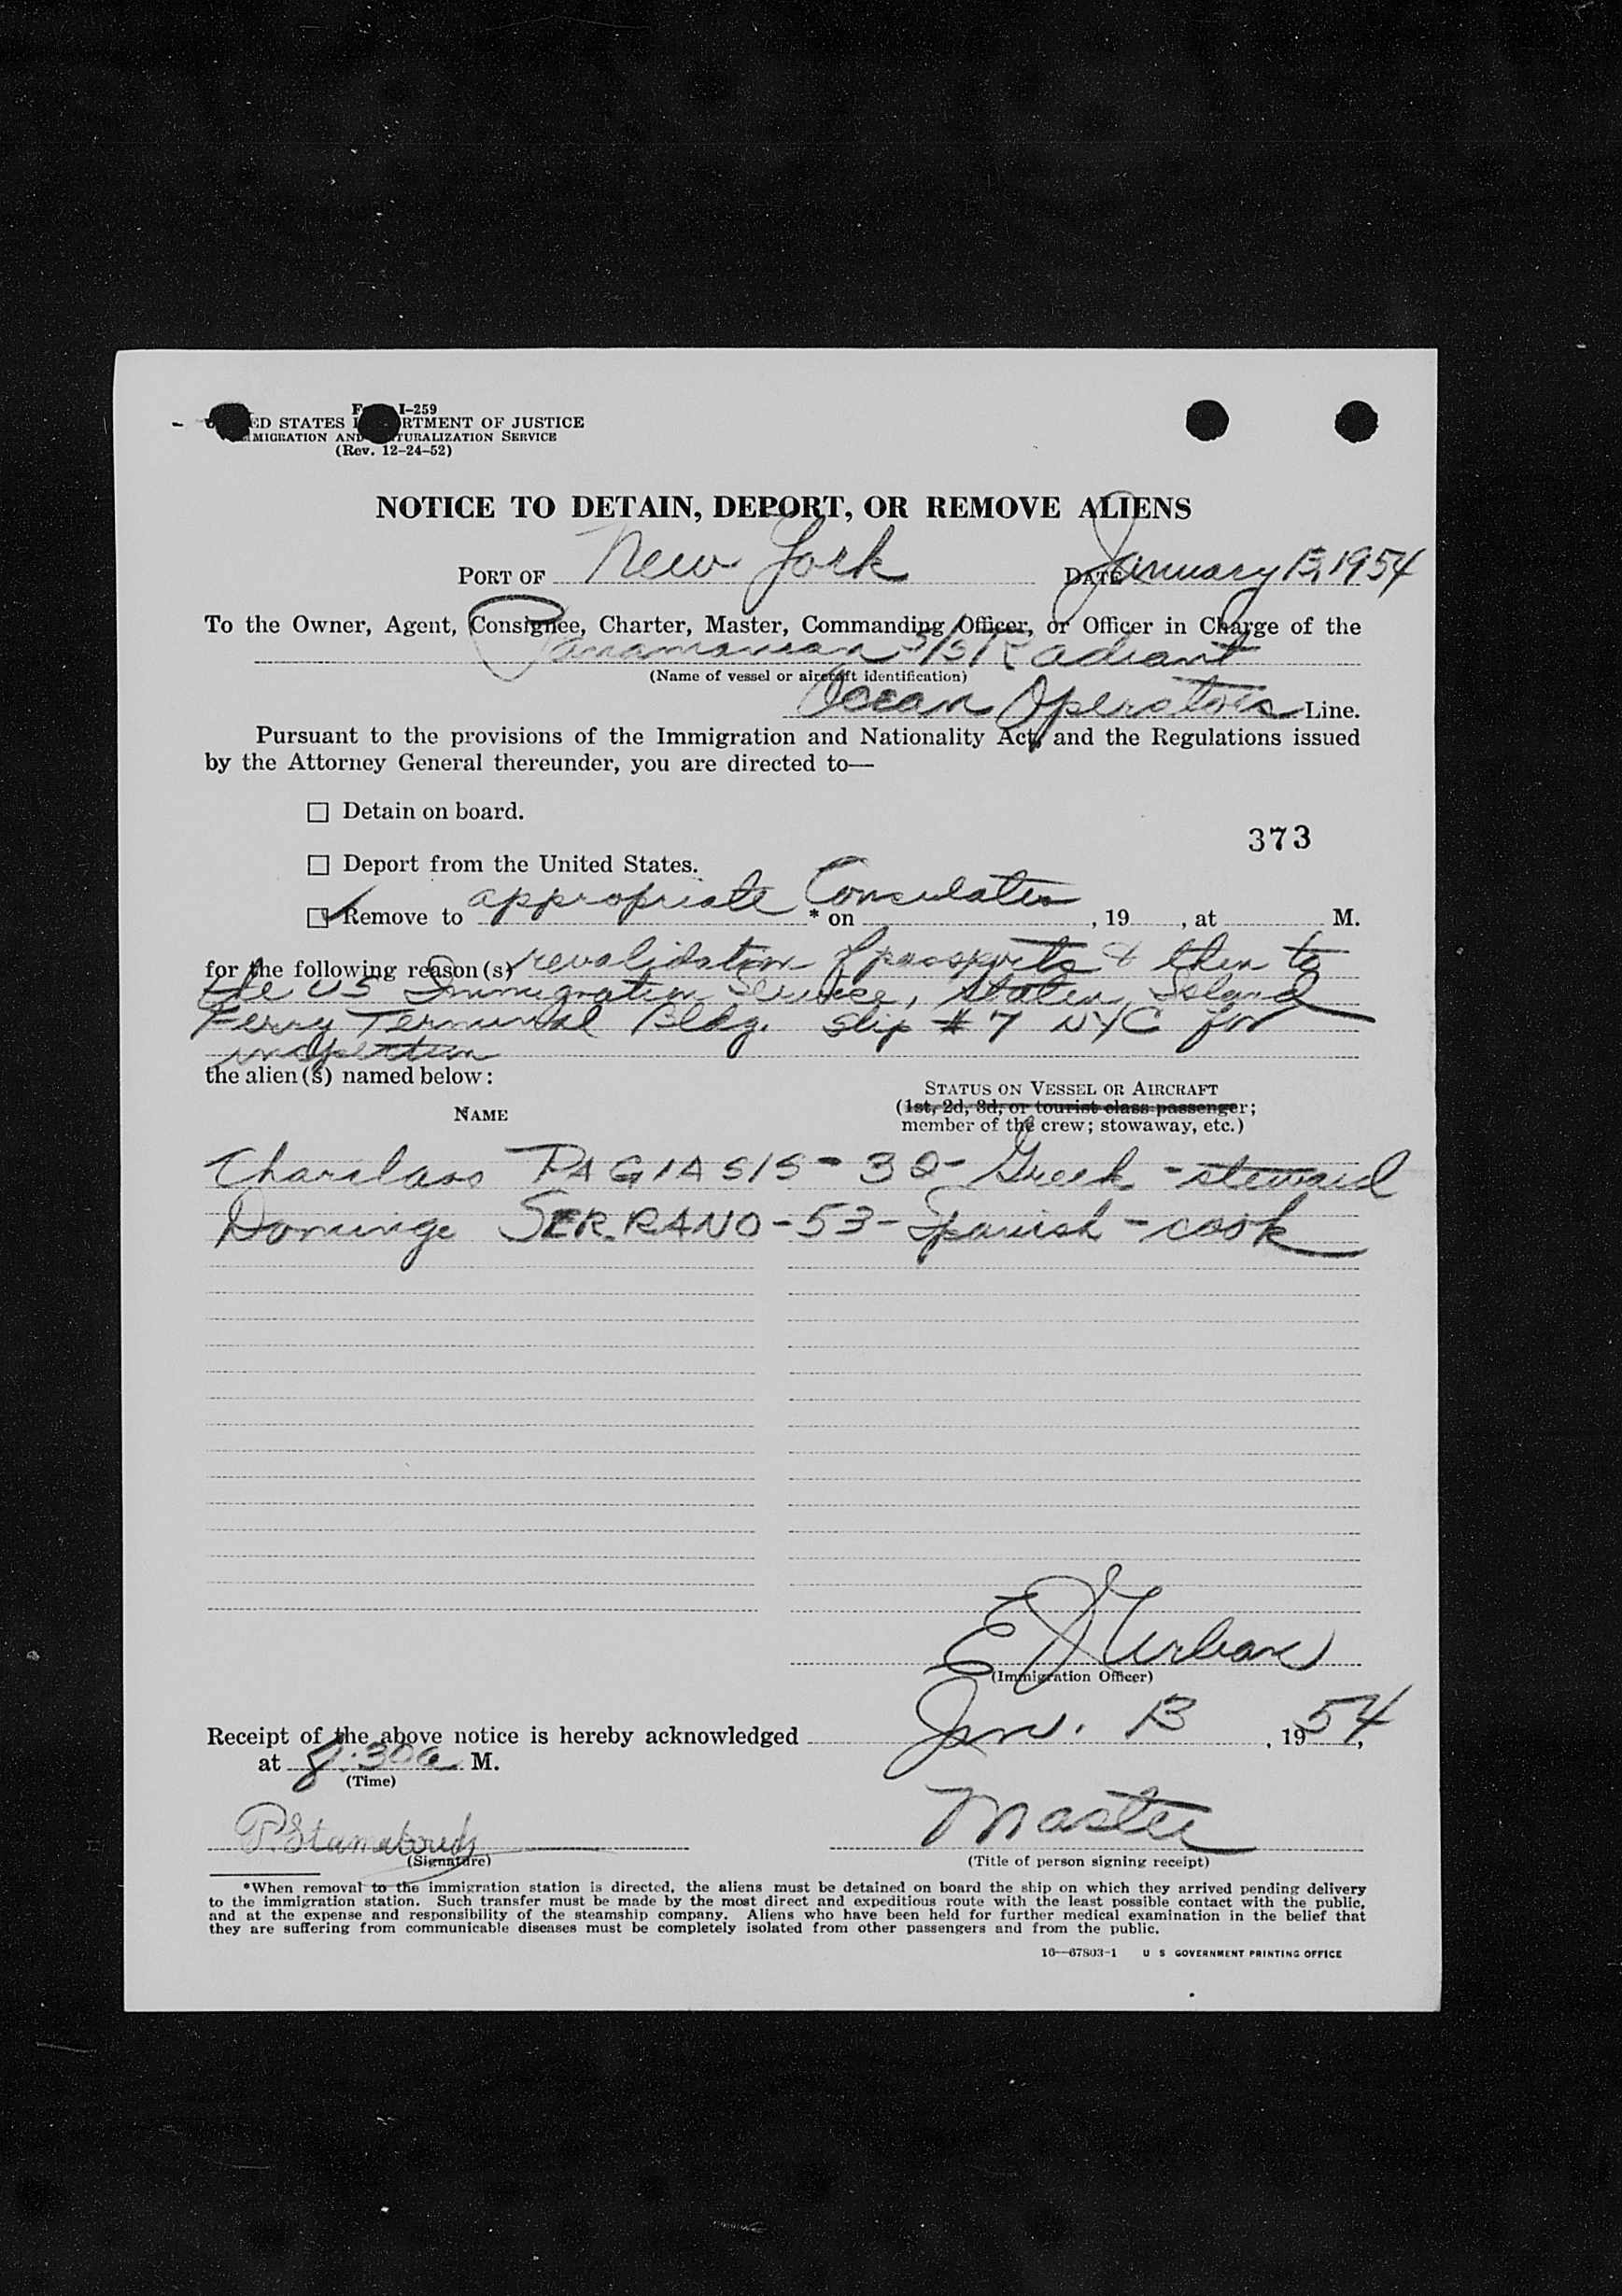 Form I-259
UNITED STATES DEPARTMENT OF JUSTICE
IMMIGRATION AND NATURALIZATION SERVICE
(Rev. 12-24-52)
NOTICE TO DETAIN, DEPORT, OR REMOVE ALIENS
PORT OF New York DATE January 13, 1954
To the Owner, Agent, Consignee, Charter, Master, Commanding Officer, or Officer in Charge of the
Panamanian S/S Radiant
(Name of vessel or aircraft identification)
Ocean Operators Line.
Pursuant to the provisions of the Immigration and Nationality Act, and the Regulations issued
by the Attorney General thereunder, you are directed to—
☐ Detain on board.
373
☐ Deport from the United States.
☑ Remove to appropriate Consulates * on , 19 , at M.
for the following reason(s) revalidation of passports & then to
the US Immigration Service, Staten Island
Ferry Terminal Bldg. Slip #7 NYC for
inspection
the alien(s) named below:
STATUS ON VESSEL OR AIRCRAFT
NAME (1st, 2d, 3d, or tourist class passenger;
member of the crew; stowaway, etc.)
Charilaos PAGIASIS - 32 - Greek - steward
Domingo SERRANO - 53 - Spanish - cook
E J Urban
(Immigration Officer)
Receipt of the above notice is hereby acknowledged Jan. 13 , 1954,
at 8:30a M.
(Time)
P. Stamatoudis Master
(Signature) (Title of person signing receipt)
*When removal to the immigration station is directed, the aliens must be detained on board the ship on which they arrived pending delivery
to the immigration station. Such transfer must be made by the most direct and expeditious route with the least possible contact with the public,
and at the expense and responsibility of the steamship company. Aliens who have been held for further medical examination in the belief that
they are suffering from communicable diseases must be completely isolated from other passengers and from the public.
16—67803-1 U S GOVERNMENT PRINTING OFFICE